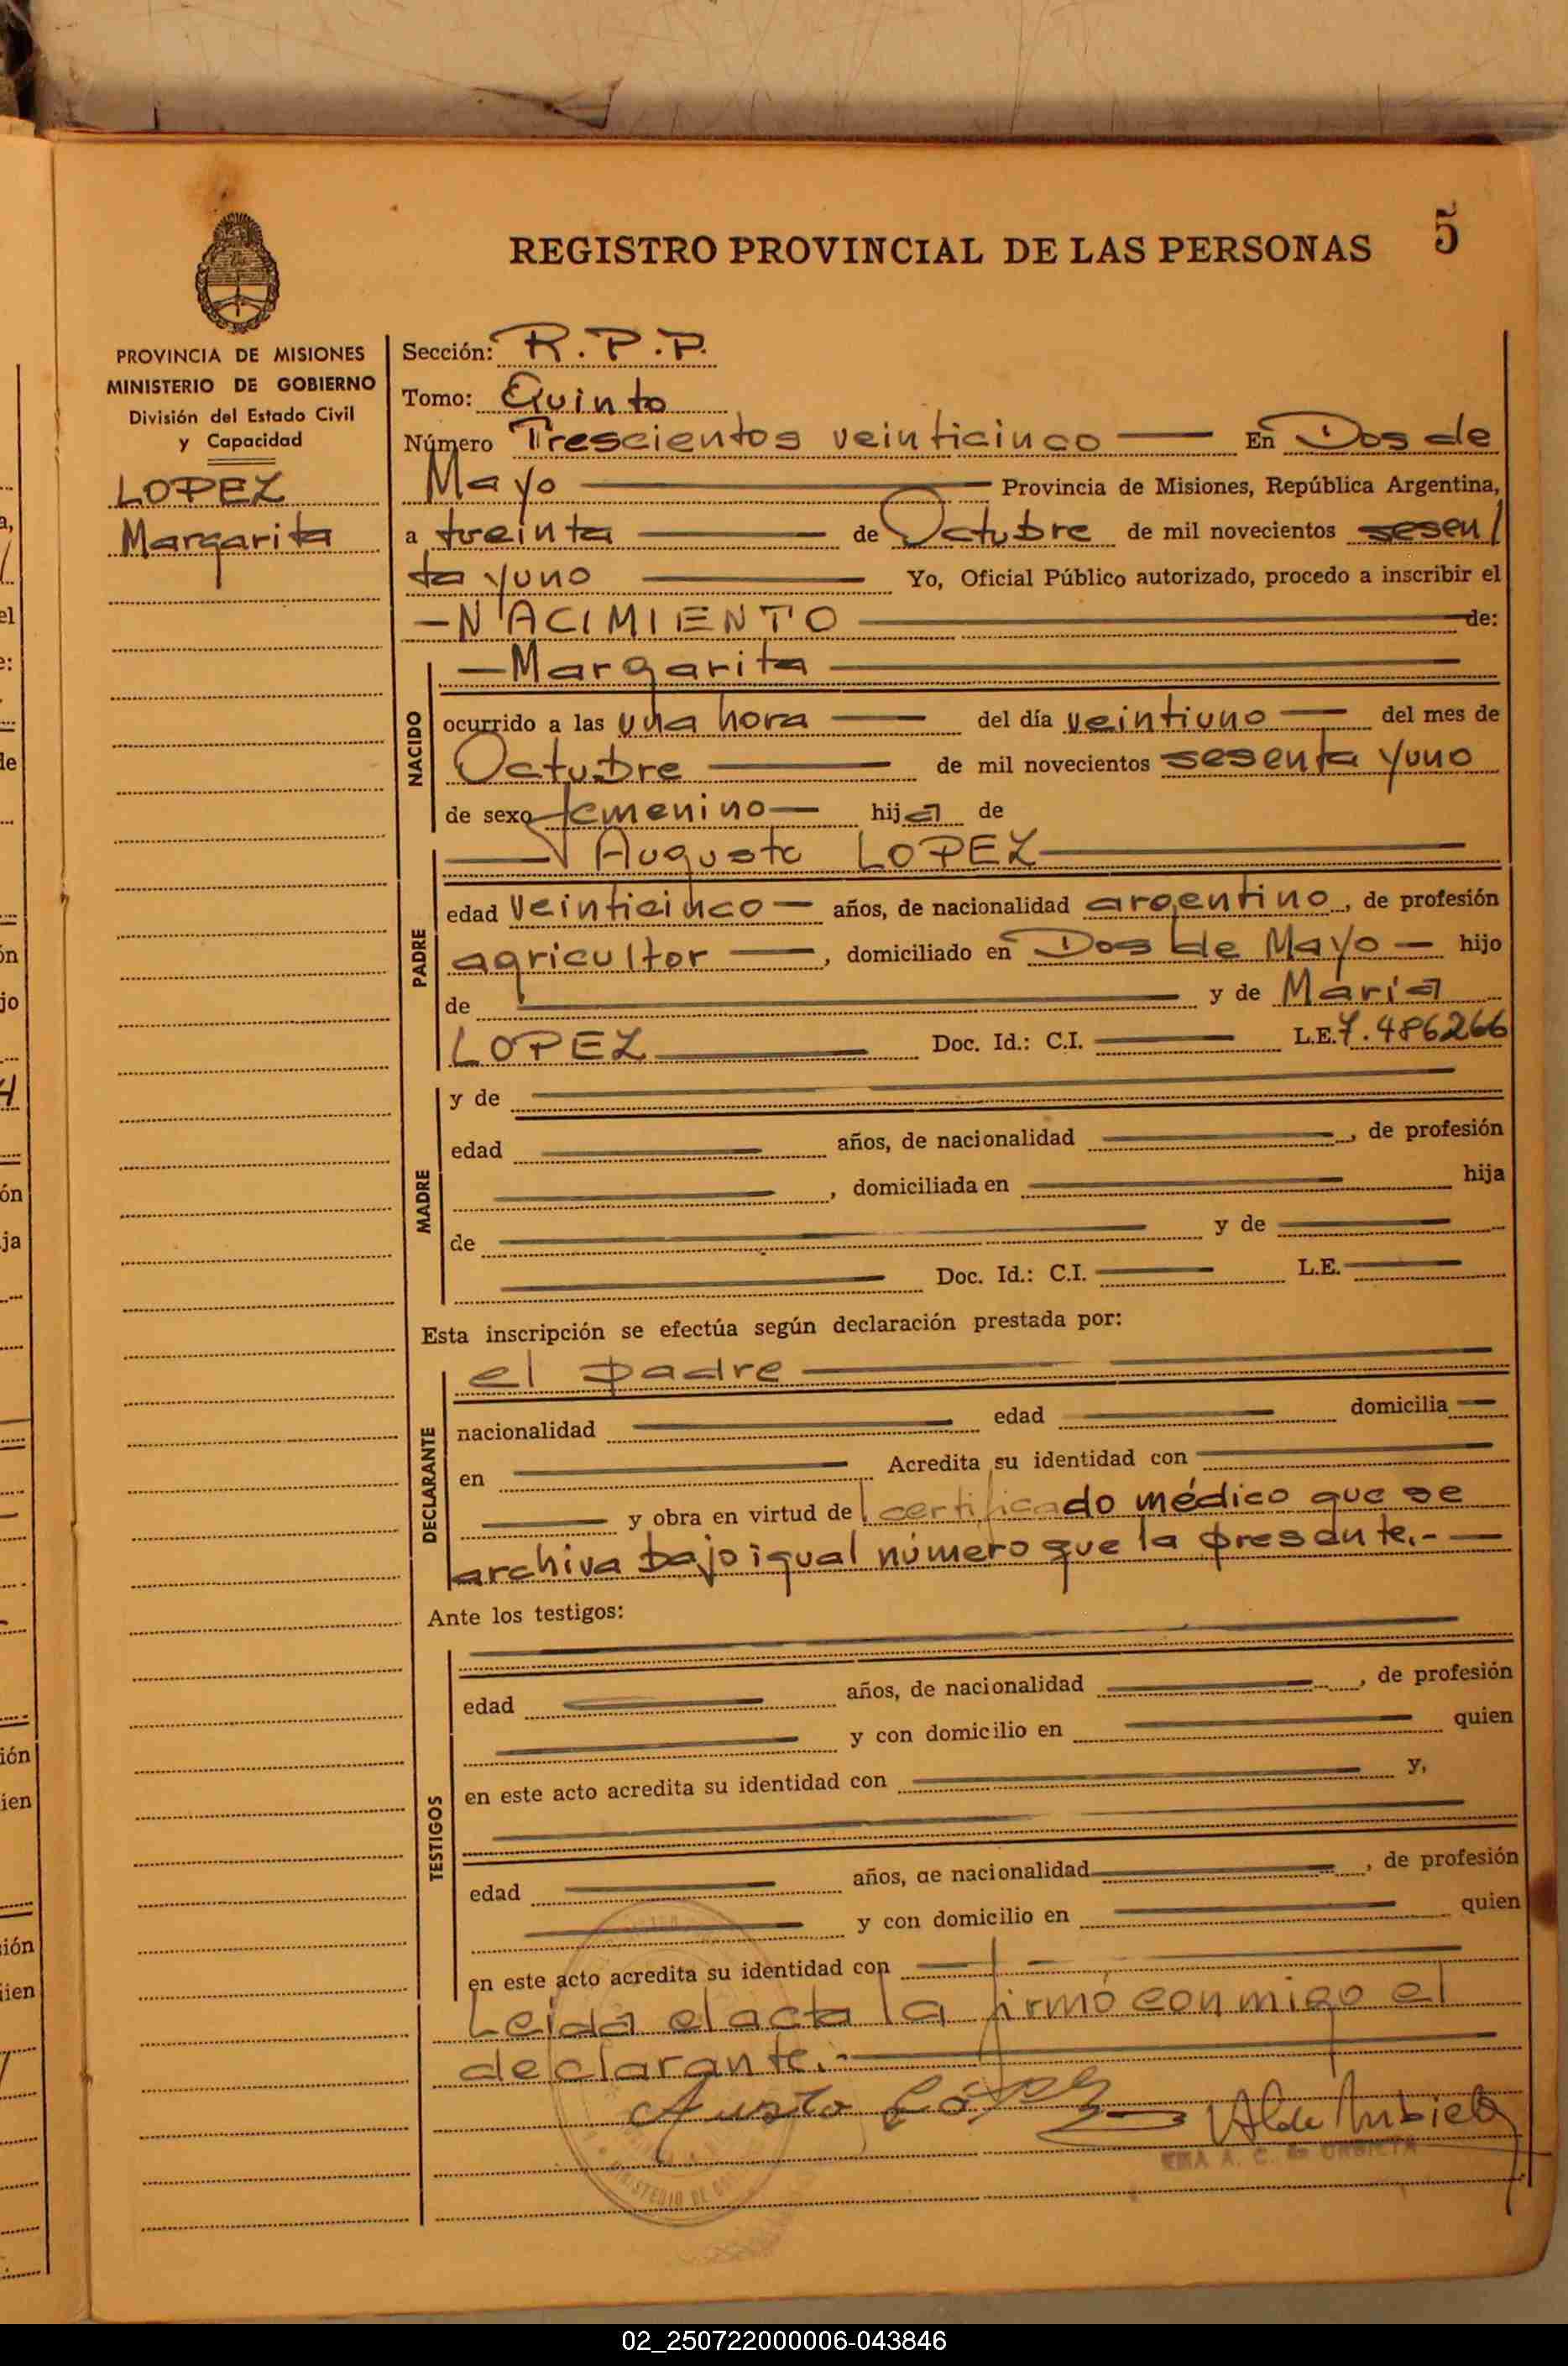 REGISTRO PROVINCIAL DE LAS PERSONAS 5
PROVINCIA DE MISIONES
MINISTERIO DE GOBIERNO
División del Estado Civil
y Capacidad
LOPEZ
Margarita
Sección: R.P.P.
Tomo: Quinto
Número Trescientos veinticinco En Dos de
Mayo Provincia de Misiones, República Argentina,
a treinta de Octubre de mil novecientos sesen/
ta y uno Yo, Oficial Público autorizado, procedo a inscribir el
-NACIMIENTO de:
NACIDO
-Margarita
ocurrido a las una hora del día veintiuno del mes de
Octubre de mil novecientos sesenta y uno
de sexo femenino hija de
PADRE
Augusto LOPEZ
edad veinticinco años, de nacionalidad argentino, de profesión
agricultor, domiciliado en Dos de Mayo hijo
de y de María
LOPEZ Doc. Id.: C.I. L.E. 7.486266
MADRE
y de
edad años, de nacionalidad , de profesión
, domiciliada en hija
de y de
Doc. Id.: C.I. L.E.
Esta inscripción se efectúa según declaración prestada por:
DECLARANTE
el padre
nacionalidad edad domicilia
en Acredita su identidad con
y obra en virtud del certificado médico que se
archiva bajo igual número que la presente.-
Ante los testigos:
TESTIGOS
edad años, de nacionalidad , de profesión
y con domicilio en quien
en este acto acredita su identidad con y,
edad años, de nacionalidad , de profesión
y con domicilio en quien
en este acto acredita su identidad con
Leída el acta la firmó conmigo el
declarante.-
López
02_250722000006-043846